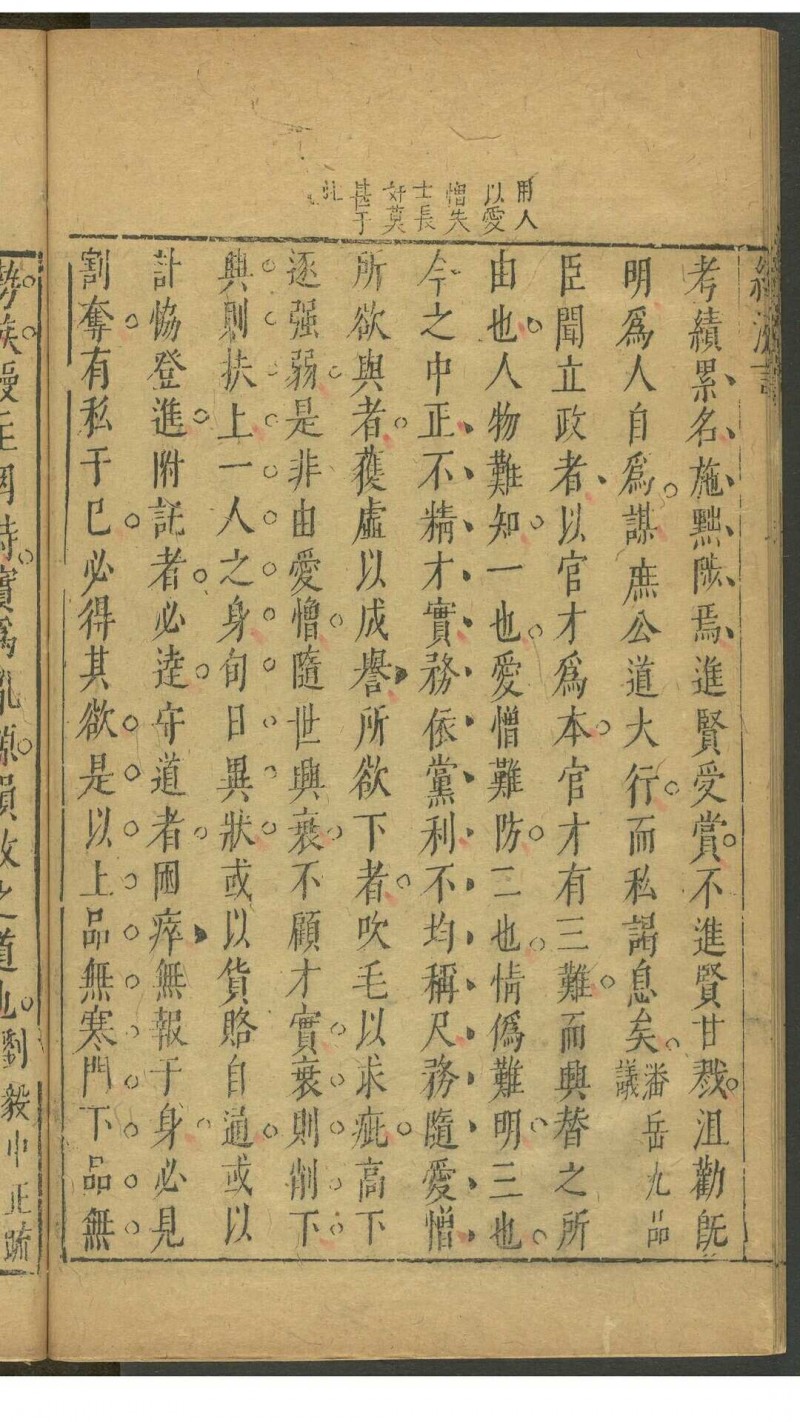 用人
以愛
憎失
士長
奸莫
甚于
此
考績累名施黜陟焉進賢受賞不進賢甘戮沮勸既
明爲人自爲謀庶公道大行而私謁息矣潘岳九品
議
臣聞立政者以官才爲本官才有三難而興替之所
由也人物難知一也愛憎難防二也情僞難明三也
今之中正不精才實務依黨利不均稱尺務隨愛憎
所欲與者獲虛以成譽所欲下者吹毛以求疵高下
逐强弱是非由愛憎隨世興衰不顧才實衰則削下
興則扶上一人之身旬日異狀或以貨賂自通或以
計恊登進附託者必逹守道者困瘁無報于身必見
割奪有私于巳必得其欲是以上品無寒門下品無
勢族
實爲亂源損政之道也劉毅中正疏